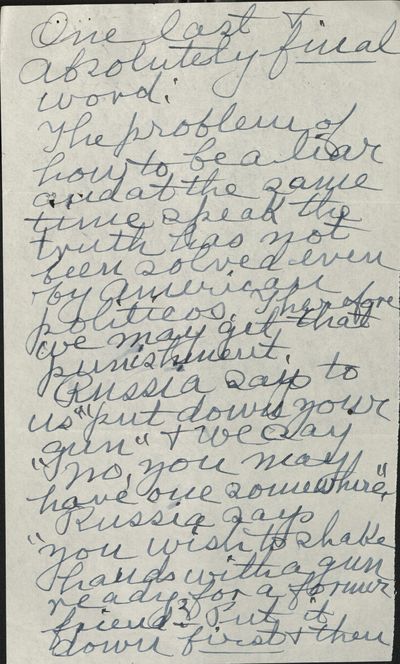 One last &
absolutely final
word.
The problem of
how to be a liar
and at the same
time speak the
truth has not
been solved even
by American
politicos. Therefore
we may get that
punishment.
Russia says to
us "put down your
gun" & we say
"No, you may
have one somewhere".
Russia says
"you wish to shake
hands with a gun
ready for a former
friend? Put it
down first & then